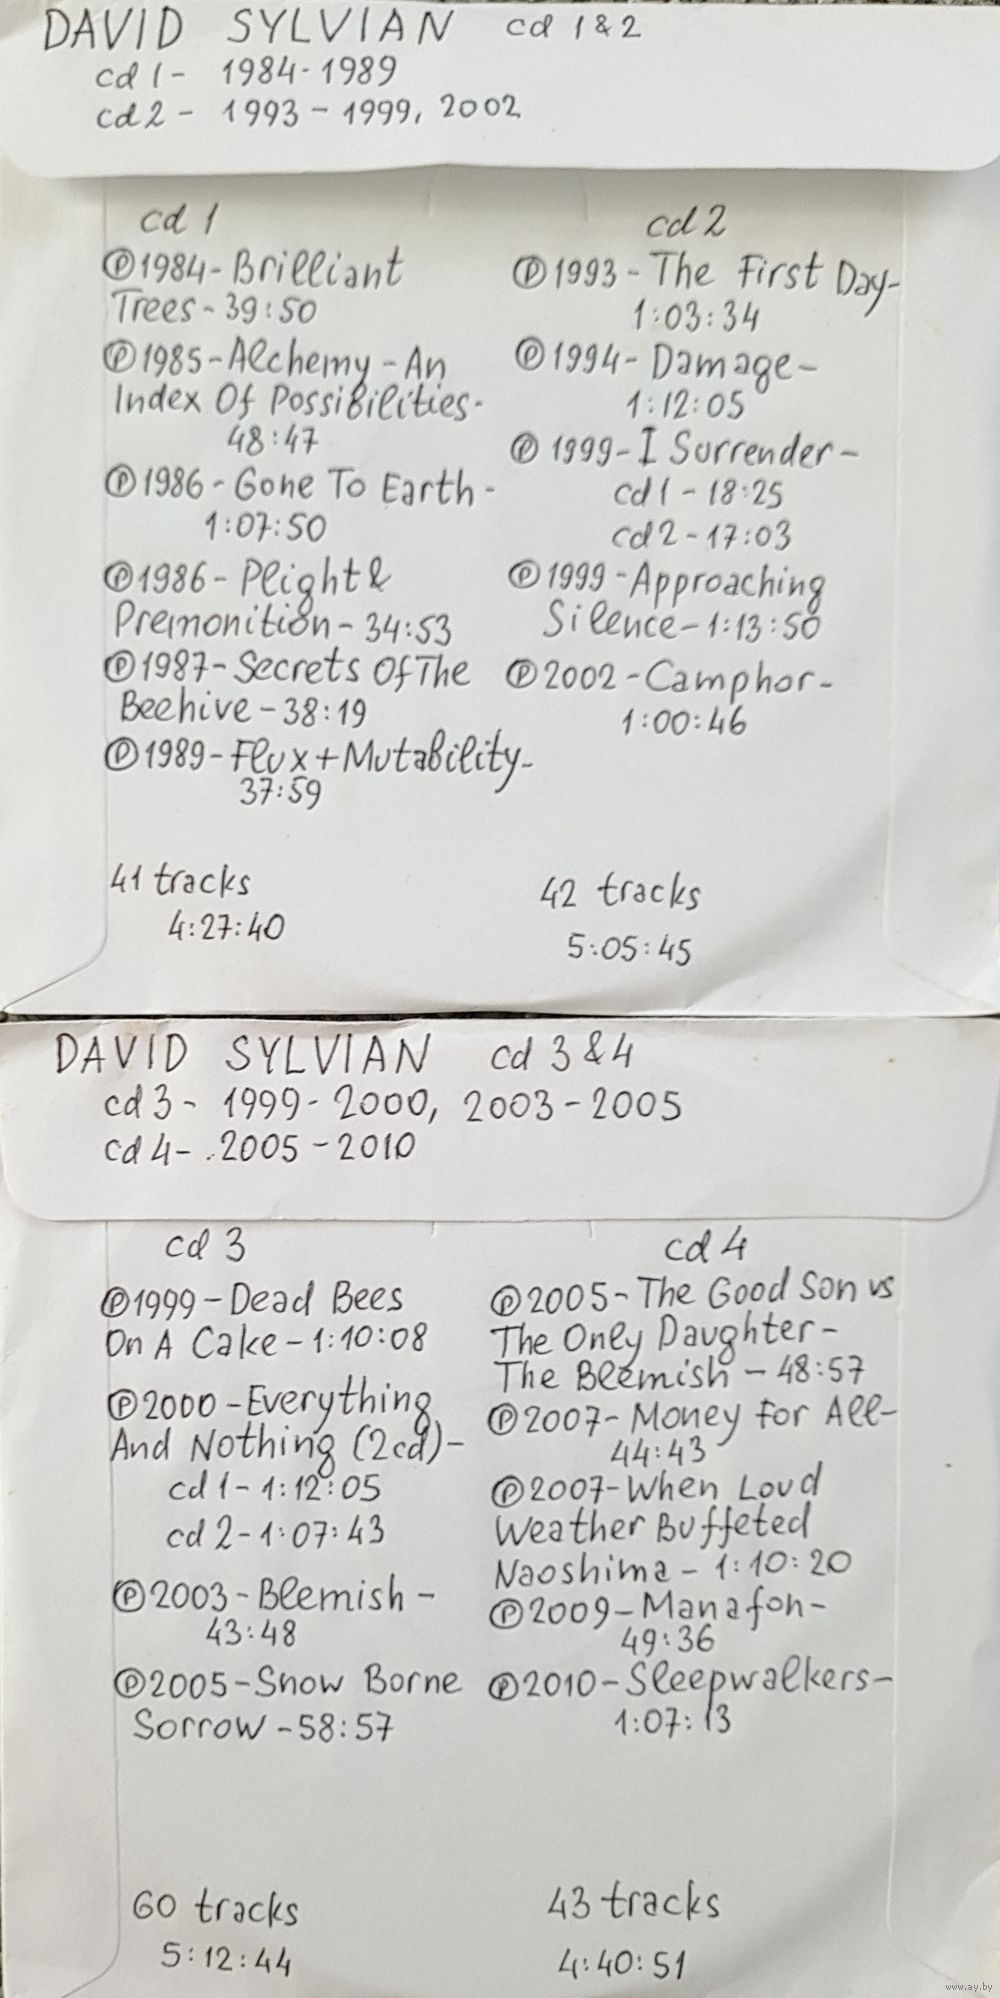 DAVID SYLVIAN cd 1&2
cd 1- 1984-1989
cd 2 - 1993 - 1999, 2002
cd 1
Ⓟ1984-Brilliant
Trees - 39:50
Ⓟ1985-Alchemy - An
Index Of Possibilities-
48:47
Ⓟ1986 - Gone To Earth -
1:07:50
Ⓟ1986 - Plight &
Premonition - 34:53
Ⓟ1987- Secrets Of The
Beehive - 38:19
Ⓟ1989-Flux+Mutability-
37:59
41 tracks
4:27:40
cd 2
Ⓟ1993 - The First Day-
1:03:34
Ⓟ1994- Damage-
1:12:05
Ⓟ 1999-I Surrender-
cd 1 - 18:25
cd 2 - 17:03
Ⓟ1999 -Approaching
Silence-1:13:50
Ⓟ2002 -Camphor-
1:00:46
42 tracks
5:05:45
DAVID SYLVIAN cd 3 & 4
cd 3 - 1999- 2000, 2003 - 2005
cd 4- 2005 - 2010
cd 3
Ⓟ1999 - Dead Bees
On A Cake - 1:10:08
Ⓟ2000 - Everything
And Nothing (2cd)-
cd 1- 1:12:05
cd 2-1:07:43
Ⓟ2003-Blemish -
43:48
Ⓟ2005-Snow Borne
Sorrow -58:57
60 tracks
5:12:44
cd 4
Ⓟ2005-The Good Son vs
The Only Daughter-
The Blemish - 48:57
Ⓟ2007- Money For All-
44:43
Ⓟ2007-When Loud
Weather Buffeted
Naoshima - 1:10:20
Ⓟ2009-Manafon-
49:36
Ⓟ2010-Sleepwalkers-
1:07:13
43 tracks
4:40:51
www.ay.by